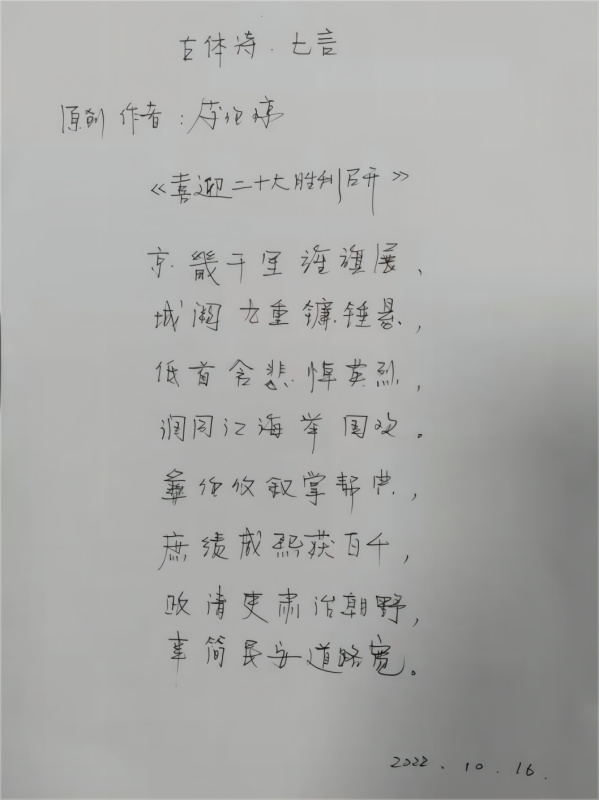 古体诗·七言
原创作者：李伯
《喜迎二十大胜利召开》
京畿千里 旗展、
城阙九重镰锤悬，
低首含悲悼英烈，
润同江海举国欢。
彝伦攸叙掌邦典，
庶绩咸熙获百千，
政清吏肃治朝野，
事简民安道路宽。
2022.10.16